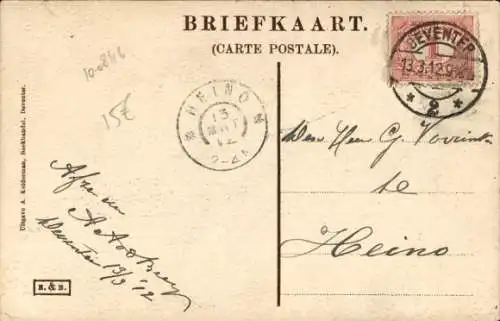 BRIEFKAART.
(CARTE POSTALE).
DEVENTER
13.3.12.9
* 2 *
HEINO
13
MRT
12
2-4N
100846
15E
Den Heer G.
te
Heino
Afz. en
Deventer 13/3 '12
B. & B.
Uitgave A. Kelderman, Boekhandel, Deventer.